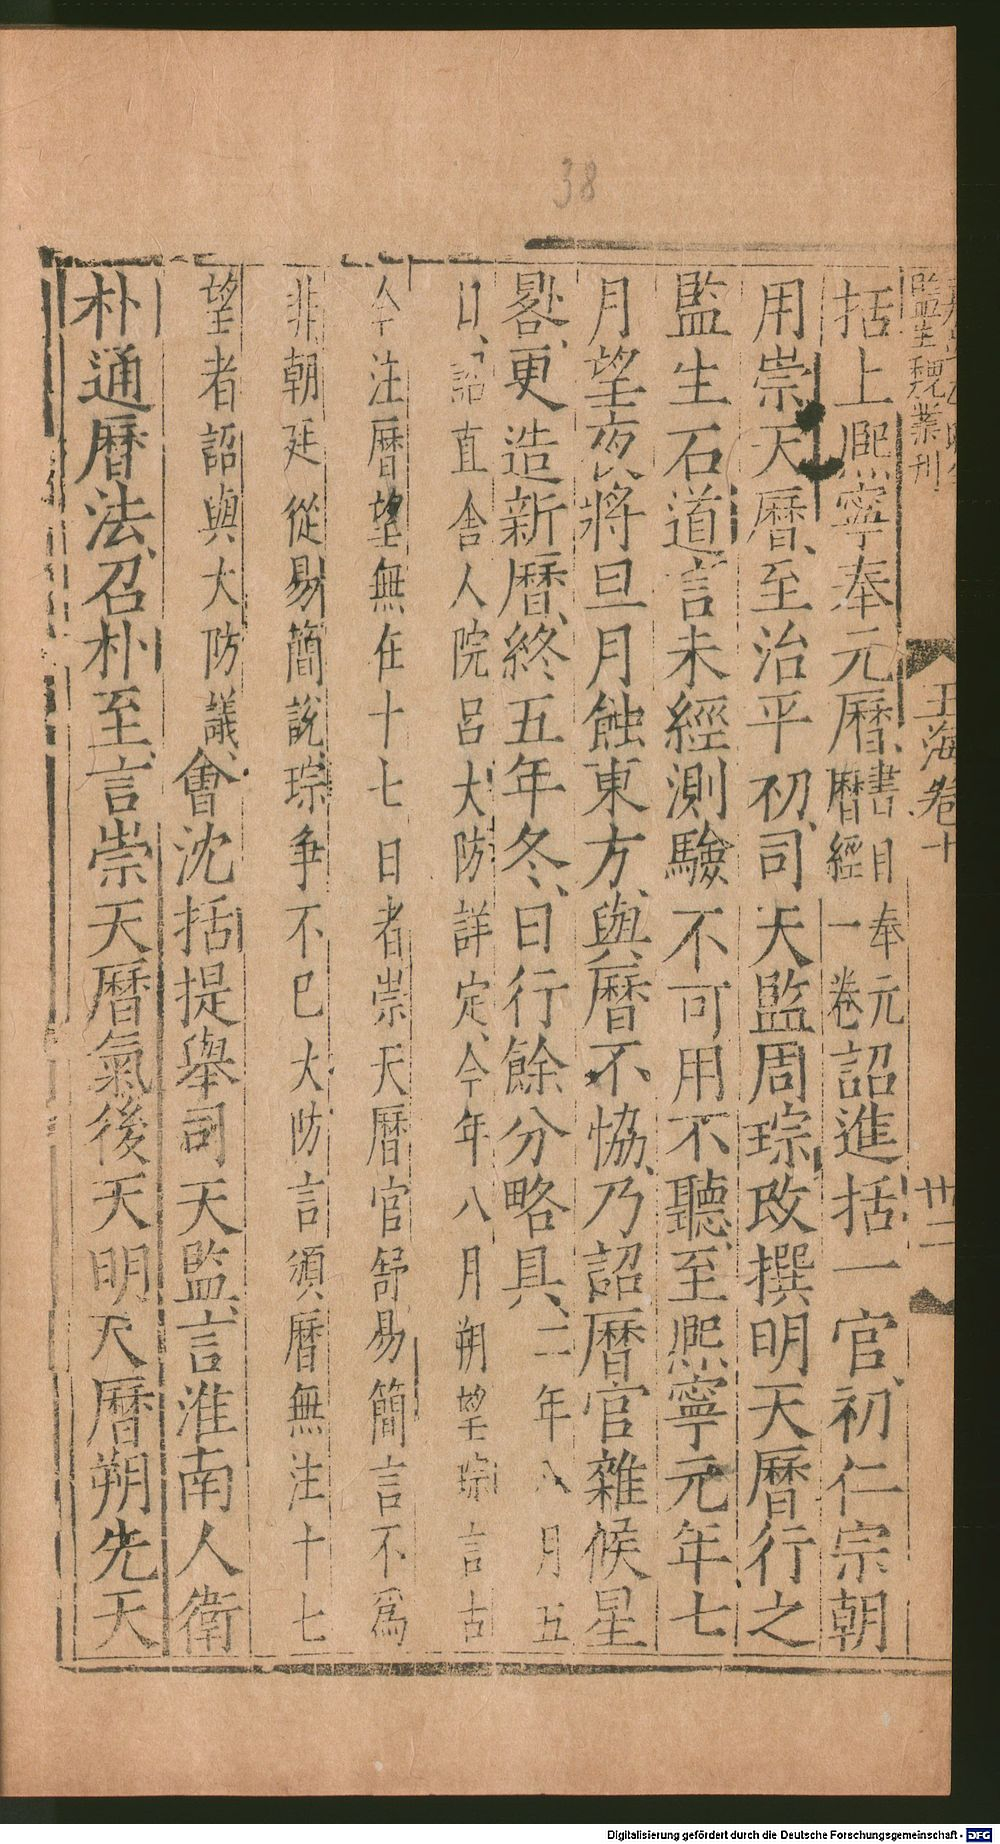 38
監生魏業刊
玉海卷十
廿二
括上熙寧奉元曆書目奉元曆經一卷詔進括一官初仁宗朝
用崇天曆至治平初司天監周琮改撰明天曆行之
監生石道言未經測驗不可用不聽至熙寧元年七
月望夜將旦月蝕東方與曆不協乃詔曆官雜候星
晷更造新曆終五年冬日行餘分略具二年八月五
日詔直舍人院呂大防詳定今年八月朔望琮言古
今注曆望無在十七日者崇天曆官舒易簡言不爲
非朝廷從易簡說琮爭不已大防言須曆無注十七
望者詔與大防議會沈括提舉司天監言淮南人衛
朴通曆法召朴至言崇天曆氣後天明天曆朔先天
Digitalisierung gefördert durch die Deutsche Forschungsgemeinschaft - DFG